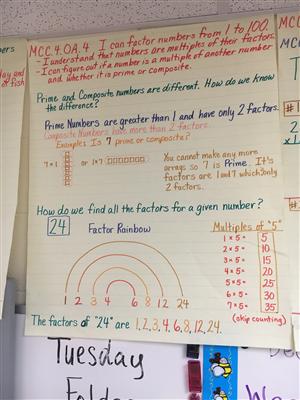 MCC.4.OA.4 I can factor numbers from 1 to 100.
-I understand that numbers are multiples of their factors.
-I can figure out if a number is a multiple of another number
and whether it is prime or composite.
Prime and Composite numbers are different. How do we know
the difference?
Prime Numbers are greater than 1 and have only 2 factors.
Composite Numbers have more than 2 factors.
Example: Is 7 prime or composite?
7×1 or 1×7
You cannot make any more
arrays so 7 is Prime. It's
factors are 1 and 7 which is only
2 factors.
How do we find all the factors for a given number?
24
Factor Rainbow
1 2 3 4 6 8 12 24
Multiples of "5"
1×5= 5
2×5= 10
3×5= 15
4×5= 20
5×5= 25
6×5= 30
7×5= 35
(skip counting)
The factors of "24" are 1, 2, 3, 4, 6, 8, 12, 24.
Tuesday
MCC
#
2
×1
#